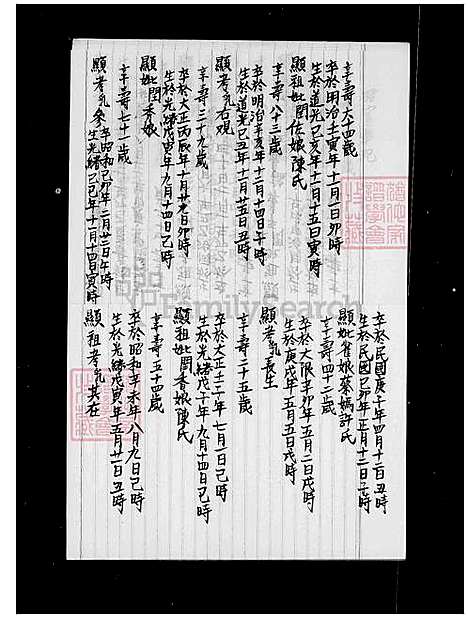 享壽六十四歲
卒於明治壬寅年十一月一日卯時
生於道光己亥年十一月十五日寅時
顯祖妣閏佐娘陳氏
享壽八十三歲
卒於明治辛亥年十二月十四日午時
生於道光己丑年十一月廿五日丑時
顯考乳右观
享壽三十九歲
卒於大正丙辰年十一月廿日卯時
生於光緒戊寅年九月十四日己時
顯妣閏香娘
享壽七十一歲
卒昭和己卯年二月廿二日午時
生光緒己巳年十一月十四日寅時
顯考乳參
卒於民國庚子年四月十二日丑時
生於民國己卯年正月十二日子時
顯妣雀娘蔡媽許氏
享壽四十二歲
卒於大限辛卯年五月二日戌時
生於庚戌年五月五日戌時
顯考乳長生
享壽二十五歲
卒於大正十二年七月一日己時
生於光緒戊子年九月十四日己時
顯祖妣閏香娘陳氏
享壽五十四歲
卒於昭和辛未年八月九日己時
生於光緒戊寅年五月廿一日丑時
顯祖考乳其在
FamilySearch